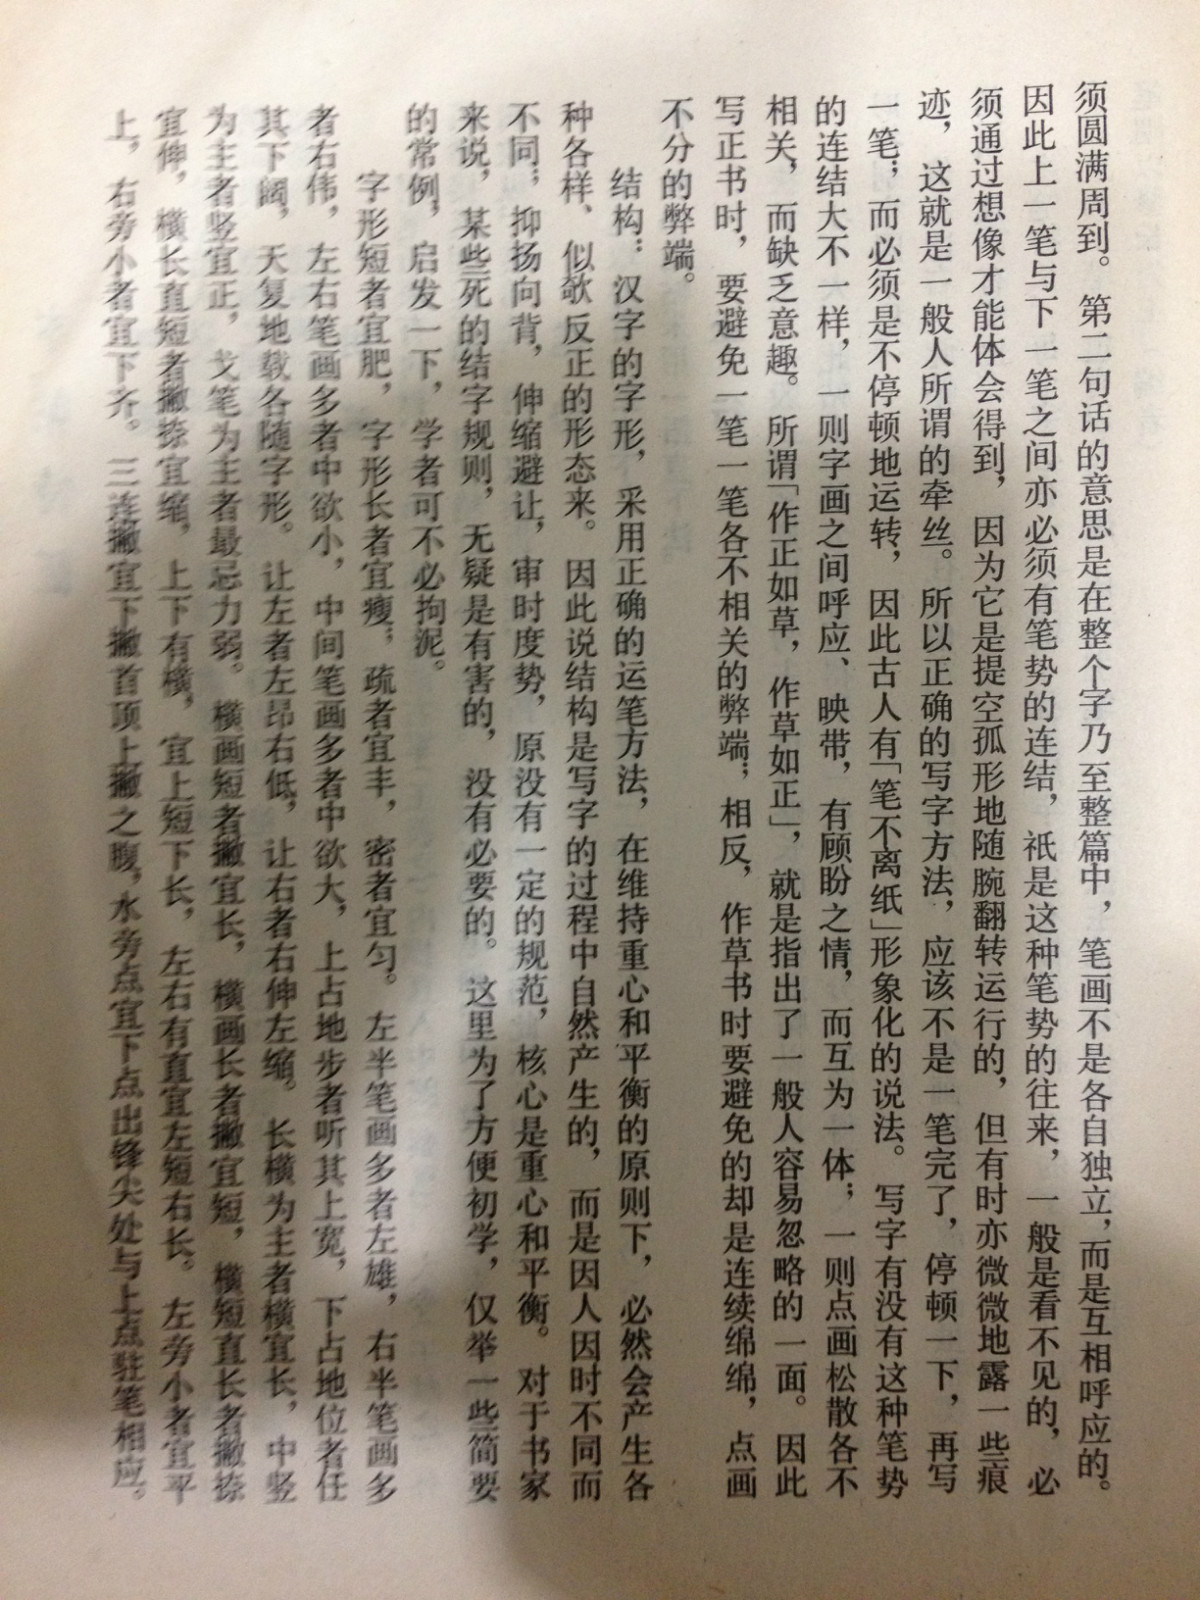 须圆满周到。第二句话的意思是在整个字乃至整篇中，笔画不是各自独立，而是互相呼应的。
因此上一笔与下一笔之间亦必须有笔势的连结，祇是这种笔势的往来，一般是看不见的，必
须通过想像才能体会得到，因为它是提空孤形地随腕翻转运行的，但有时亦微微地露一些痕
迹，这就是一般人所谓的牵丝。所以正确的写字方法，应该不是一笔完了，停顿一下，再写
一笔；而必须是不停顿地运转，因此古人有「笔不离纸」形象化的说法。写字有没有这种笔势
的连结大不一样，一则字画之间呼应、映带，有顾盼之情，而互为一体；一则点画松散各不
相关，而缺乏意趣。所谓「作正如草，作草如正」，就是指出了一般人容易忽略的一面。因此
写正书时，要避免一笔一笔各不相关的弊端；相反，作草书时要避免的却是连续绵绵，点画
不分的弊端。
结构：汉字的字形，采用正确的运笔方法，在维持重心和平衡的原则下，必然会产生各
种各样、似欹反正的形态来。因此说结构是写字的过程中自然产生的，而是因人因时不同而
不同；抑扬向背，伸缩避让，审时度势，原没有一定的规范，核心是重心和平衡。对于书家
来说，某些死的结字规则，无疑是有害的，没有必要的。这里为了方便初学，仅举一些简要
的常例，启发一下，学者可不必拘泥。
字形短者宜肥，字形长者宜瘦；疏者宜丰，密者宜匀。左半笔画多者左雄，右半笔画多
者右伟，左右笔画多者中欲小，中间笔画多者中欲大，上占地步者听其上宽，下占地位者任
其下阔，天复地载各随字形。让左者左昂右低，让右者右伸左缩。长横为主者横宜长，中竖
为主者竖宜正，戈笔为主者最忌力弱。横画短者撇宜长，横画长者撇宜短，横短直长者撇捺
宜伸，横长直短者撇捺宜缩，上下有横，宜上短下长，左右有直宜左短右长。左旁小者宜平
上，右旁小者宜下齐。三连撇宜下撇首顶上撇之腹，水旁点宜下点出锋尖处与上点驻笔相应。